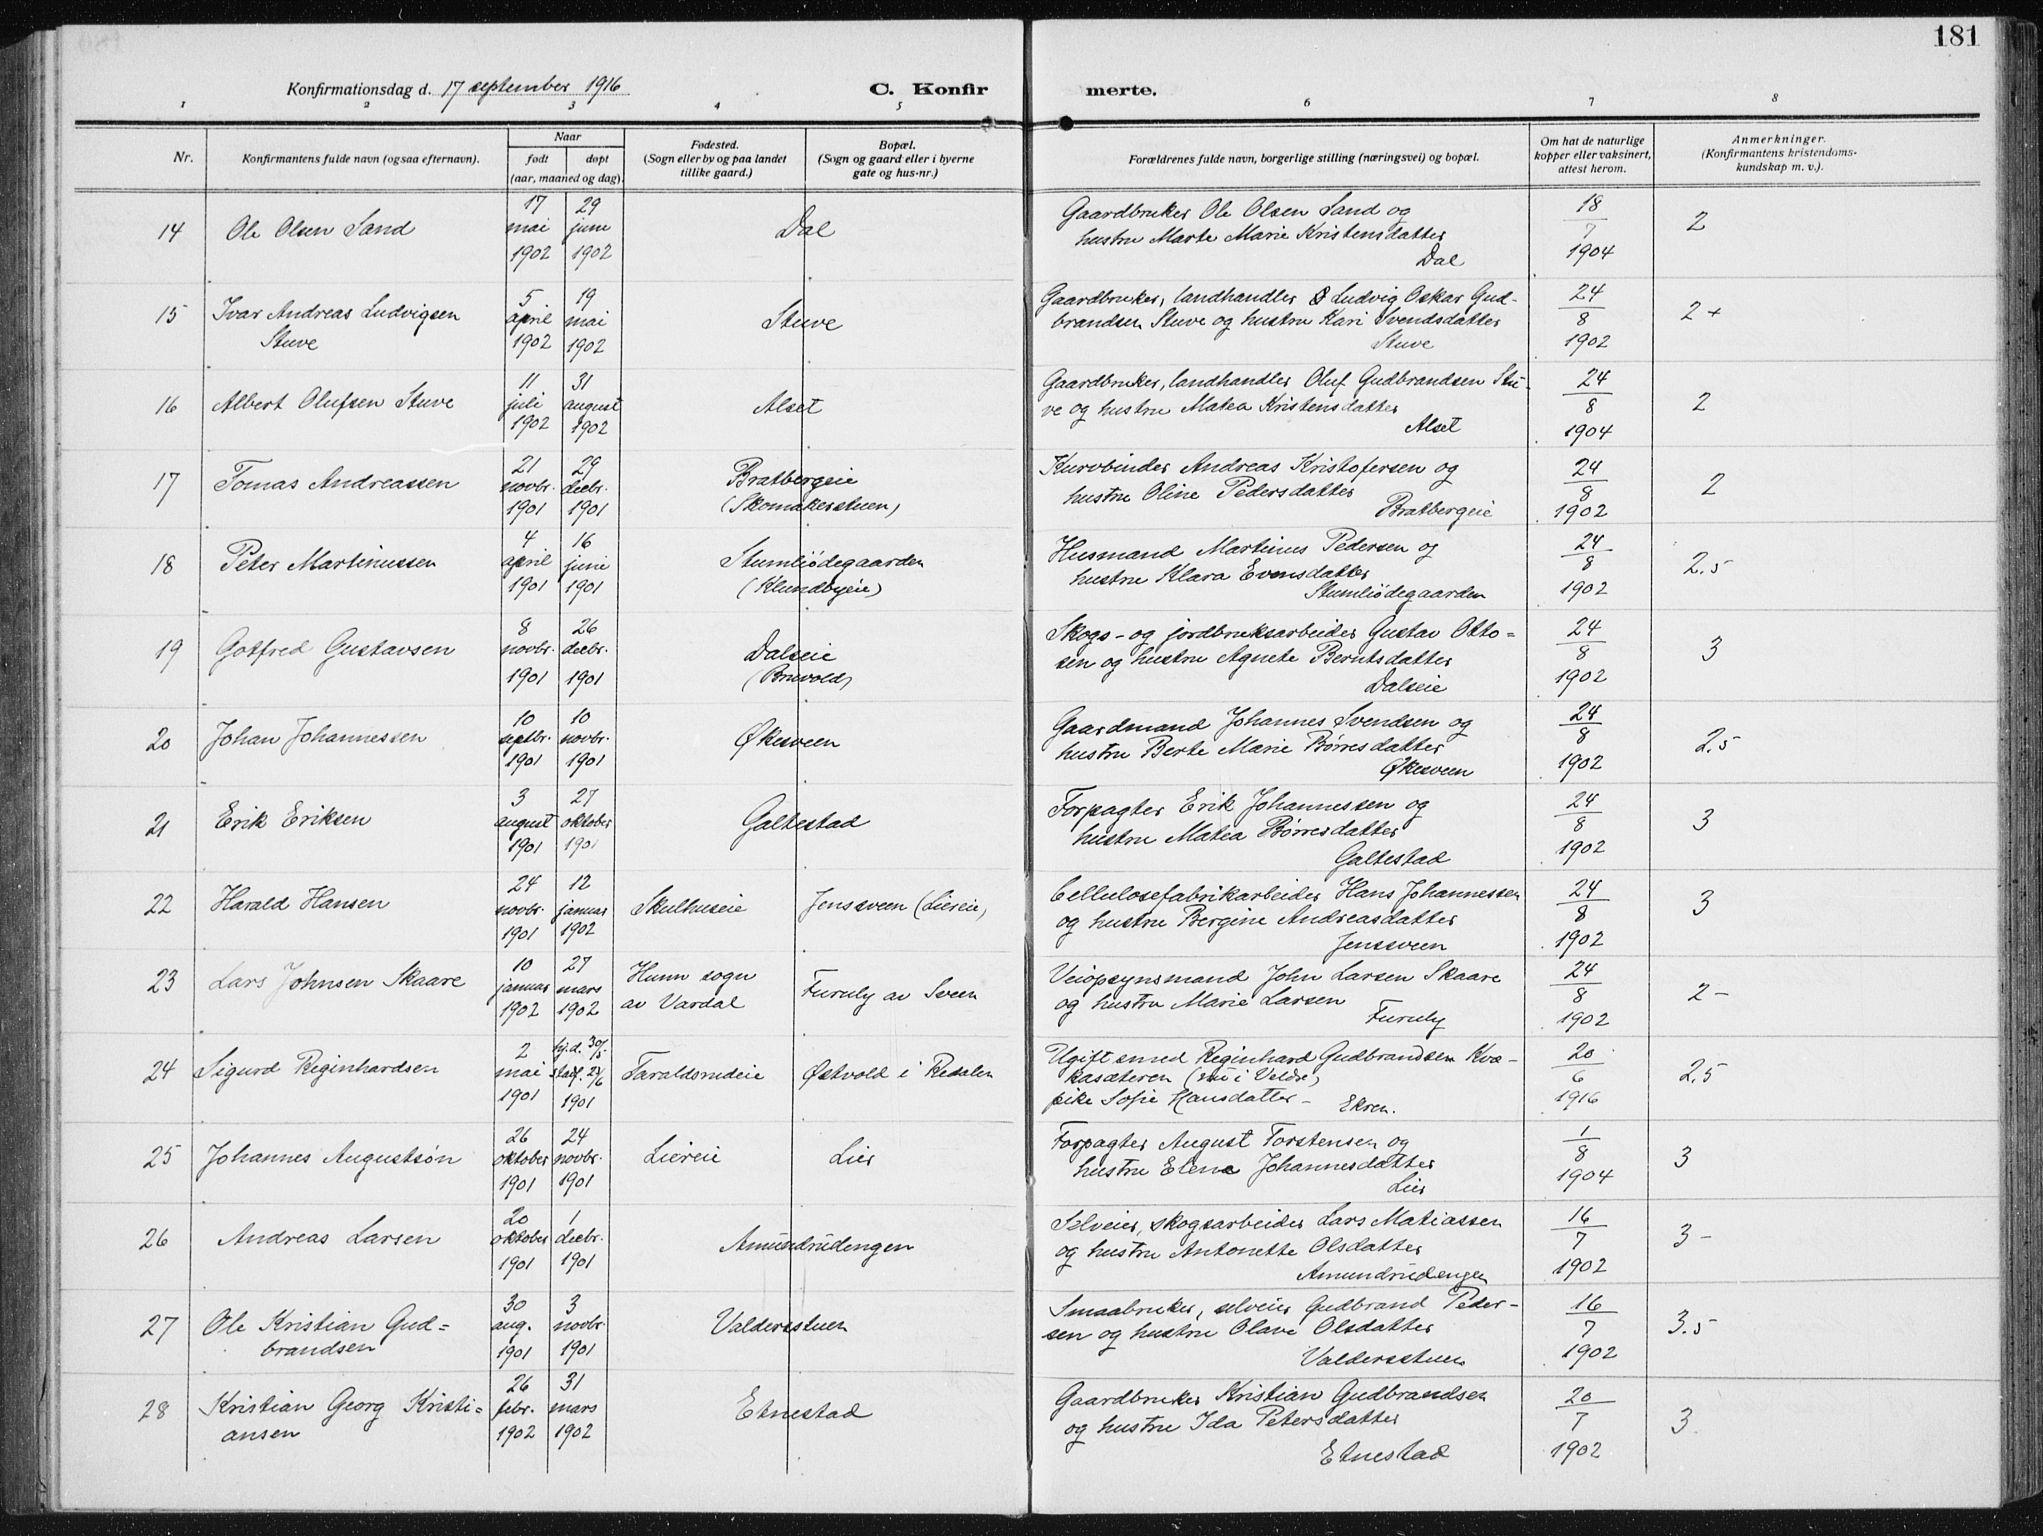 181
Konfirmationsdag d. 17 september 1916
C. Konfirmerte.
1 2 3 4 5 6 7 8
Nr.
Konfirmantens fulde navn (ogsaa efternavn).
Naar
født døpt
(aar, maaned og dag).
Fødested.
(Sogn eller by og paa landet
tillike gaard.)
Bopæl.
(Sogn og gaard eller i byerne
gate og hus-nr.)
Forældrenes fulde navn, borgerlige stilling (næringsvei) og bopæl.
Om hat de naturlige
kopper eller vaksinert,
attest herom.
Anmerkninger.
(Konfirmantens kristendoms-
kundskap m. v.).
14 Ole Olsen Sand 17 mai 1902 29 juni 1902 Dal
Gaardbruker Ole Olsen Sand og
hustru Marte Marie Kristensdatter
Dal
18/7 1904 2
15 Ivar Andreas Ludvigsen
Stuve
5 april 1902 19 mai 1902 Stuve
Gaardbruker, landhandler Ludvig Oskar Gud-
brandsen Stuve og hustru Kari Svendsdatter
Stuve
24/8 1902 2+
16 Albert Olufsen Stuve 11 juli 1902 31 august 1902 Alset
Gaardbruker, landhandler Oluf Gudbrandsen Stu-
ve og hustru Matea Kristensdatter
Alset
24/8 1904 2
17 Tomas Andreassen 21 novbr. 1901 29 decbr. 1901 Bratbergeie
(Skomakerstuen)
Kurvbinder Andreas Kristofersen og
hustru Oline Pedersdatter
Bratbergeie
24/8 1902 2
18 Peter Martinussen 4 april 1901 16 juni 1901 Stumliødegaarden
(Klundbyeie)
Husmand Martinus Pedersen og
hustru Klara Evensdatter
Stumliødegaarden
24/8 1902 2.5
19 Gotfred Gustavsen 8 novbr. 1901 26 decbr. 1901 Dalseie
(Bruvold)
Skogs- og jordbruksarbeider Gustav Otto=
sen og hustru Agnete Berntsdatter
Dalseie
24/8 1902 3
20 Johan Johannessen 10 septbr. 1901 10 novbr. 1901 Økesveen
Gaardmand Johannes Svendsen og
hustru Berte Marie Børresdatter
Økesveen
24/8 1902 2.5
21 Erik Eriksen 3 august 1901 27 oktober 1901 Galtestad
Forpagter Erik Johannessen og
hustru Matea Børresdatter
Galtestad
24/8 1902 3
22 Harald Hansen 24 novbr. 1901 12 januar 1902 Skulhuseie Jenssveen (Liereie)
Cellulosefabrikarbeider Hans Johannessen
og hustru Bergine Andreasdatter
Jenssveen
24/8 1902 3
23 Lars Johnsen Skaare 10 januar 1902 27 mars 1902 Hunn sogn
av Vardal
Furuly av Sveen
Veiopsynsmand John Larsen Skaare
og hustru Marie Larsen
Furuly
24/8 1902 2-
24 Sigurd Reginhardsen 2 mai 1901 hj.d. 30/5 stadf. 23/6 1901 Taraldsrudeie Østvold i Redalen
Ugift smed Reginhard Gudbrandsen Kvæ-
kasæteren (nu i Veldre)
pike Sofie Hansdatter - Ekren.
20/6 1916 2.5
25 Johannes Augustsøn 26 oktober 1901 24 novbr. 1901 Liereie Lier
Forpagter August Torstensen og
hustru Elene Johannesdatter
Lier
1/8 1904 3
26 Andreas Larsen 20 oktober 1901 1 decbr. 1901 Amundrudengen
Selveier, skogsarbeider Lars Matiassen
og hustru Antonette Olsdatter
Amundrudengen
16/7 1902 3-
27 Ole Kristian Gud=
brandsen
30 aug. 1901 3 novbr. 1901 Valdersstuen
Smaabruker, selveier Gudbrand Peder-
sen og hustru Olave Olsdatter
Valdersstuen
16/7 1902 3.5
28 Kristian Georg Kristi=
ansen
26 febr. 1902 31 mars 1902 Etnestad
Gaardbruker Kristian Gudbrandsen
og hustru Ida Petersdatter
Etnestad
20/7 1902 3